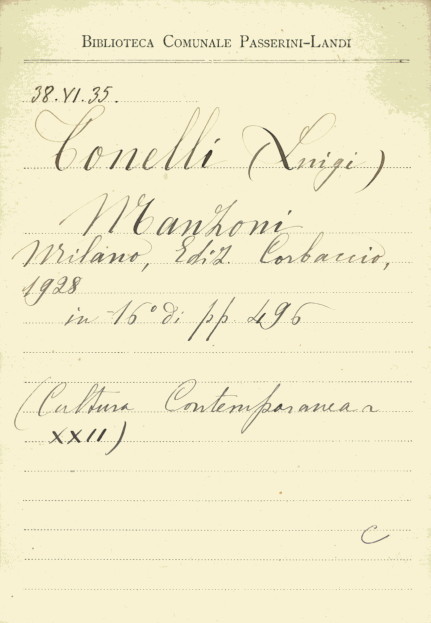 BIBLIOTECA COMUNALE PASSERINI-LANDI
38.VI.35.
Tonelli (Luigi)
Manzoni
Milano, Ediz. Corbaccio,
1928
in 16° di pp. 496
(Cultura Contemporanea
XXII)
C